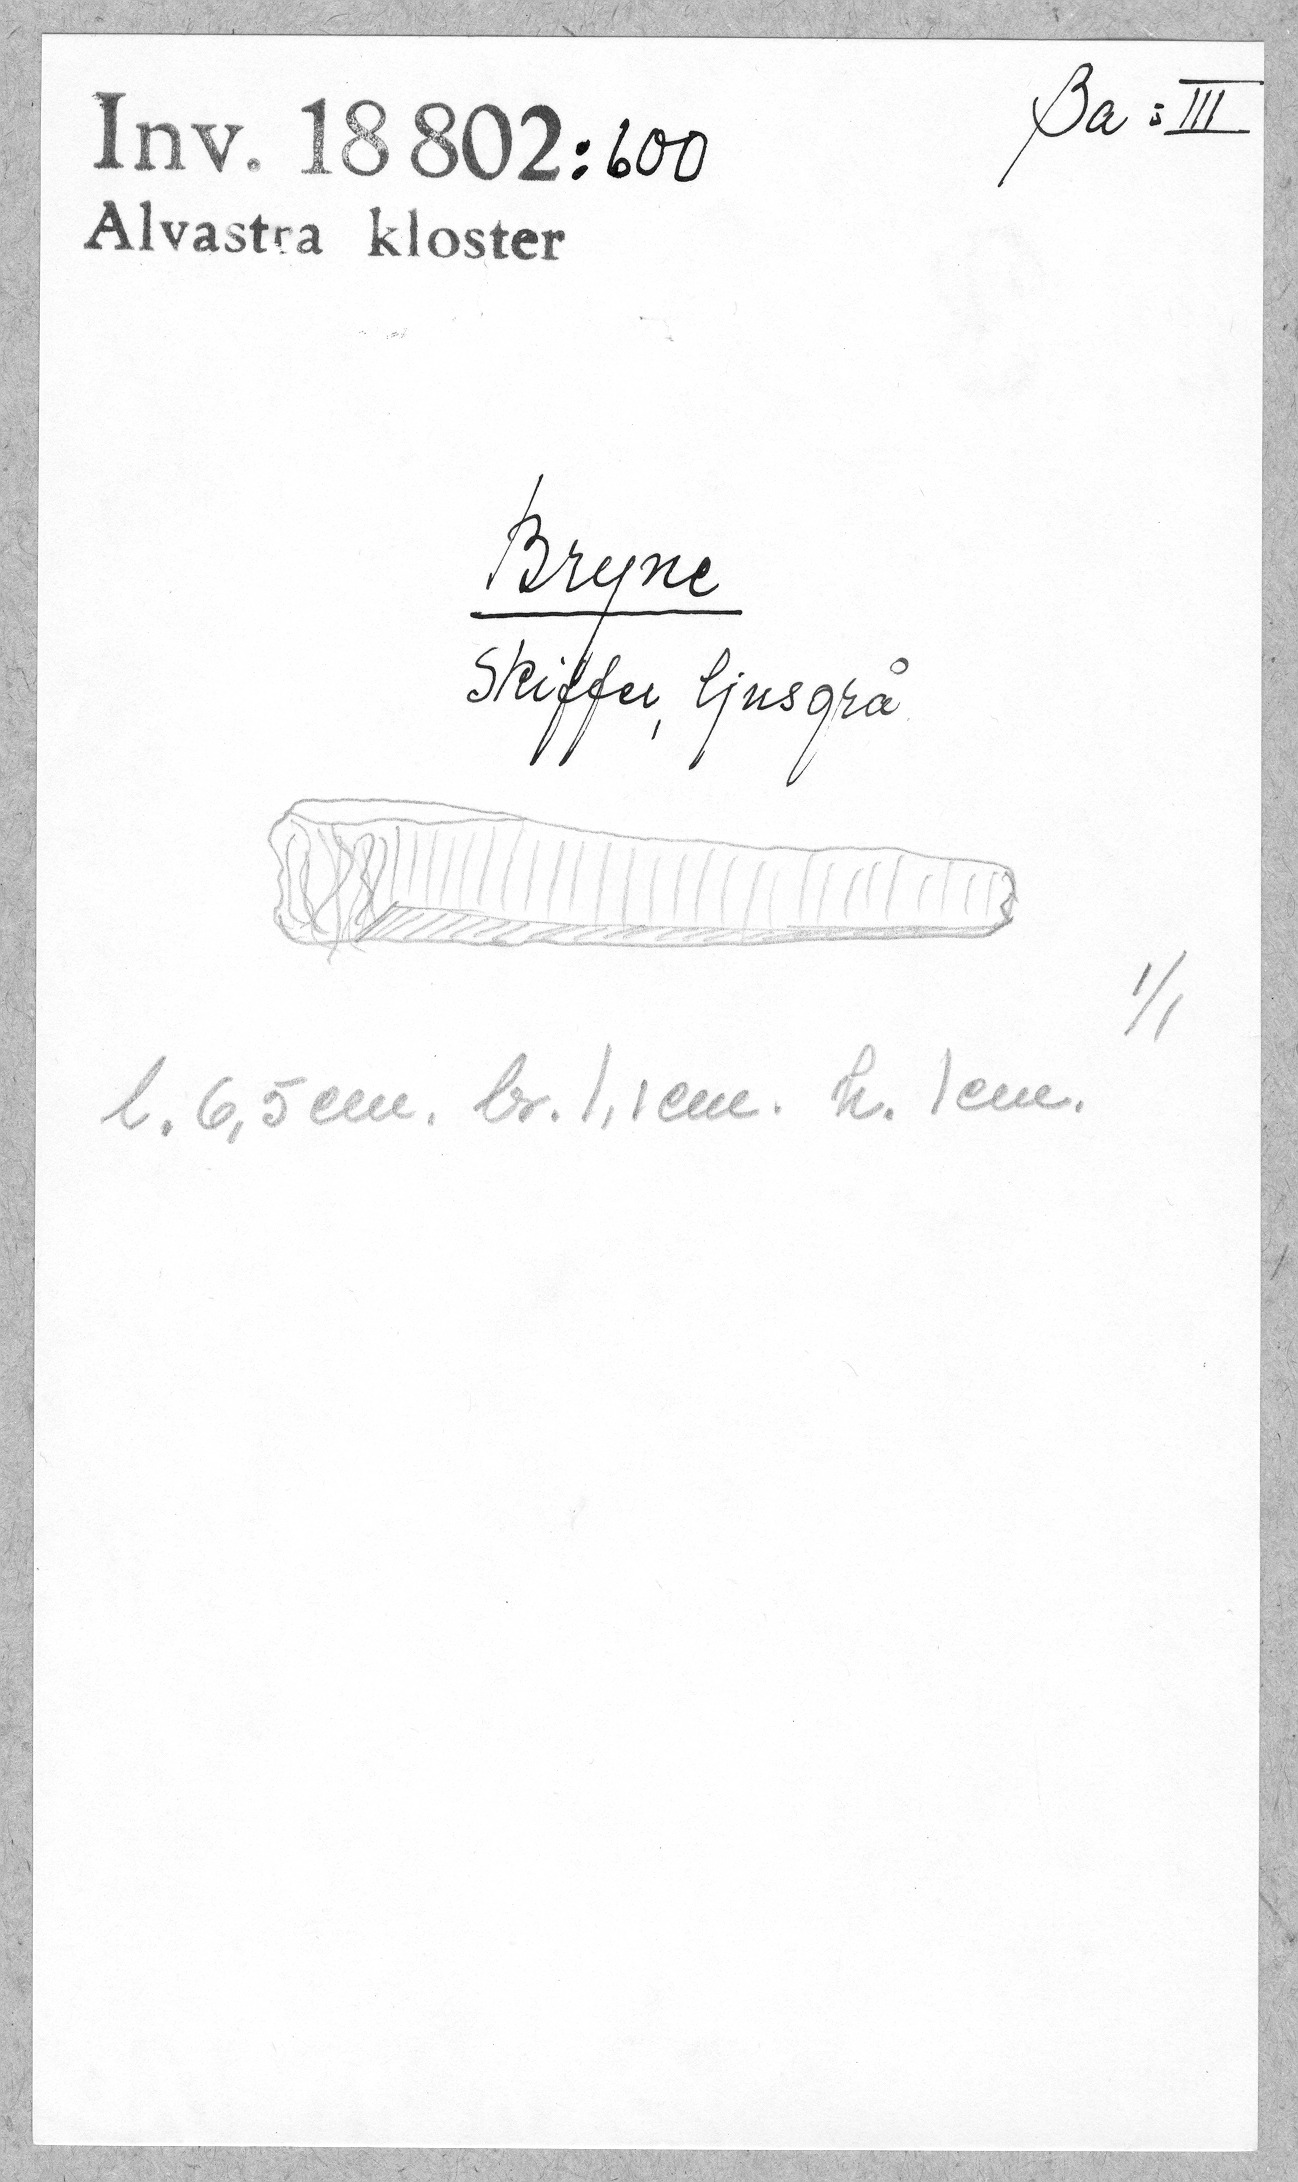 Inv. 18 802:600
Ba : III
Alvastra kloster
Bryne
Skiffer, ljusgrå
1/1
l. 6,5 cm. br. 1,1 cm. h. 1 cm.